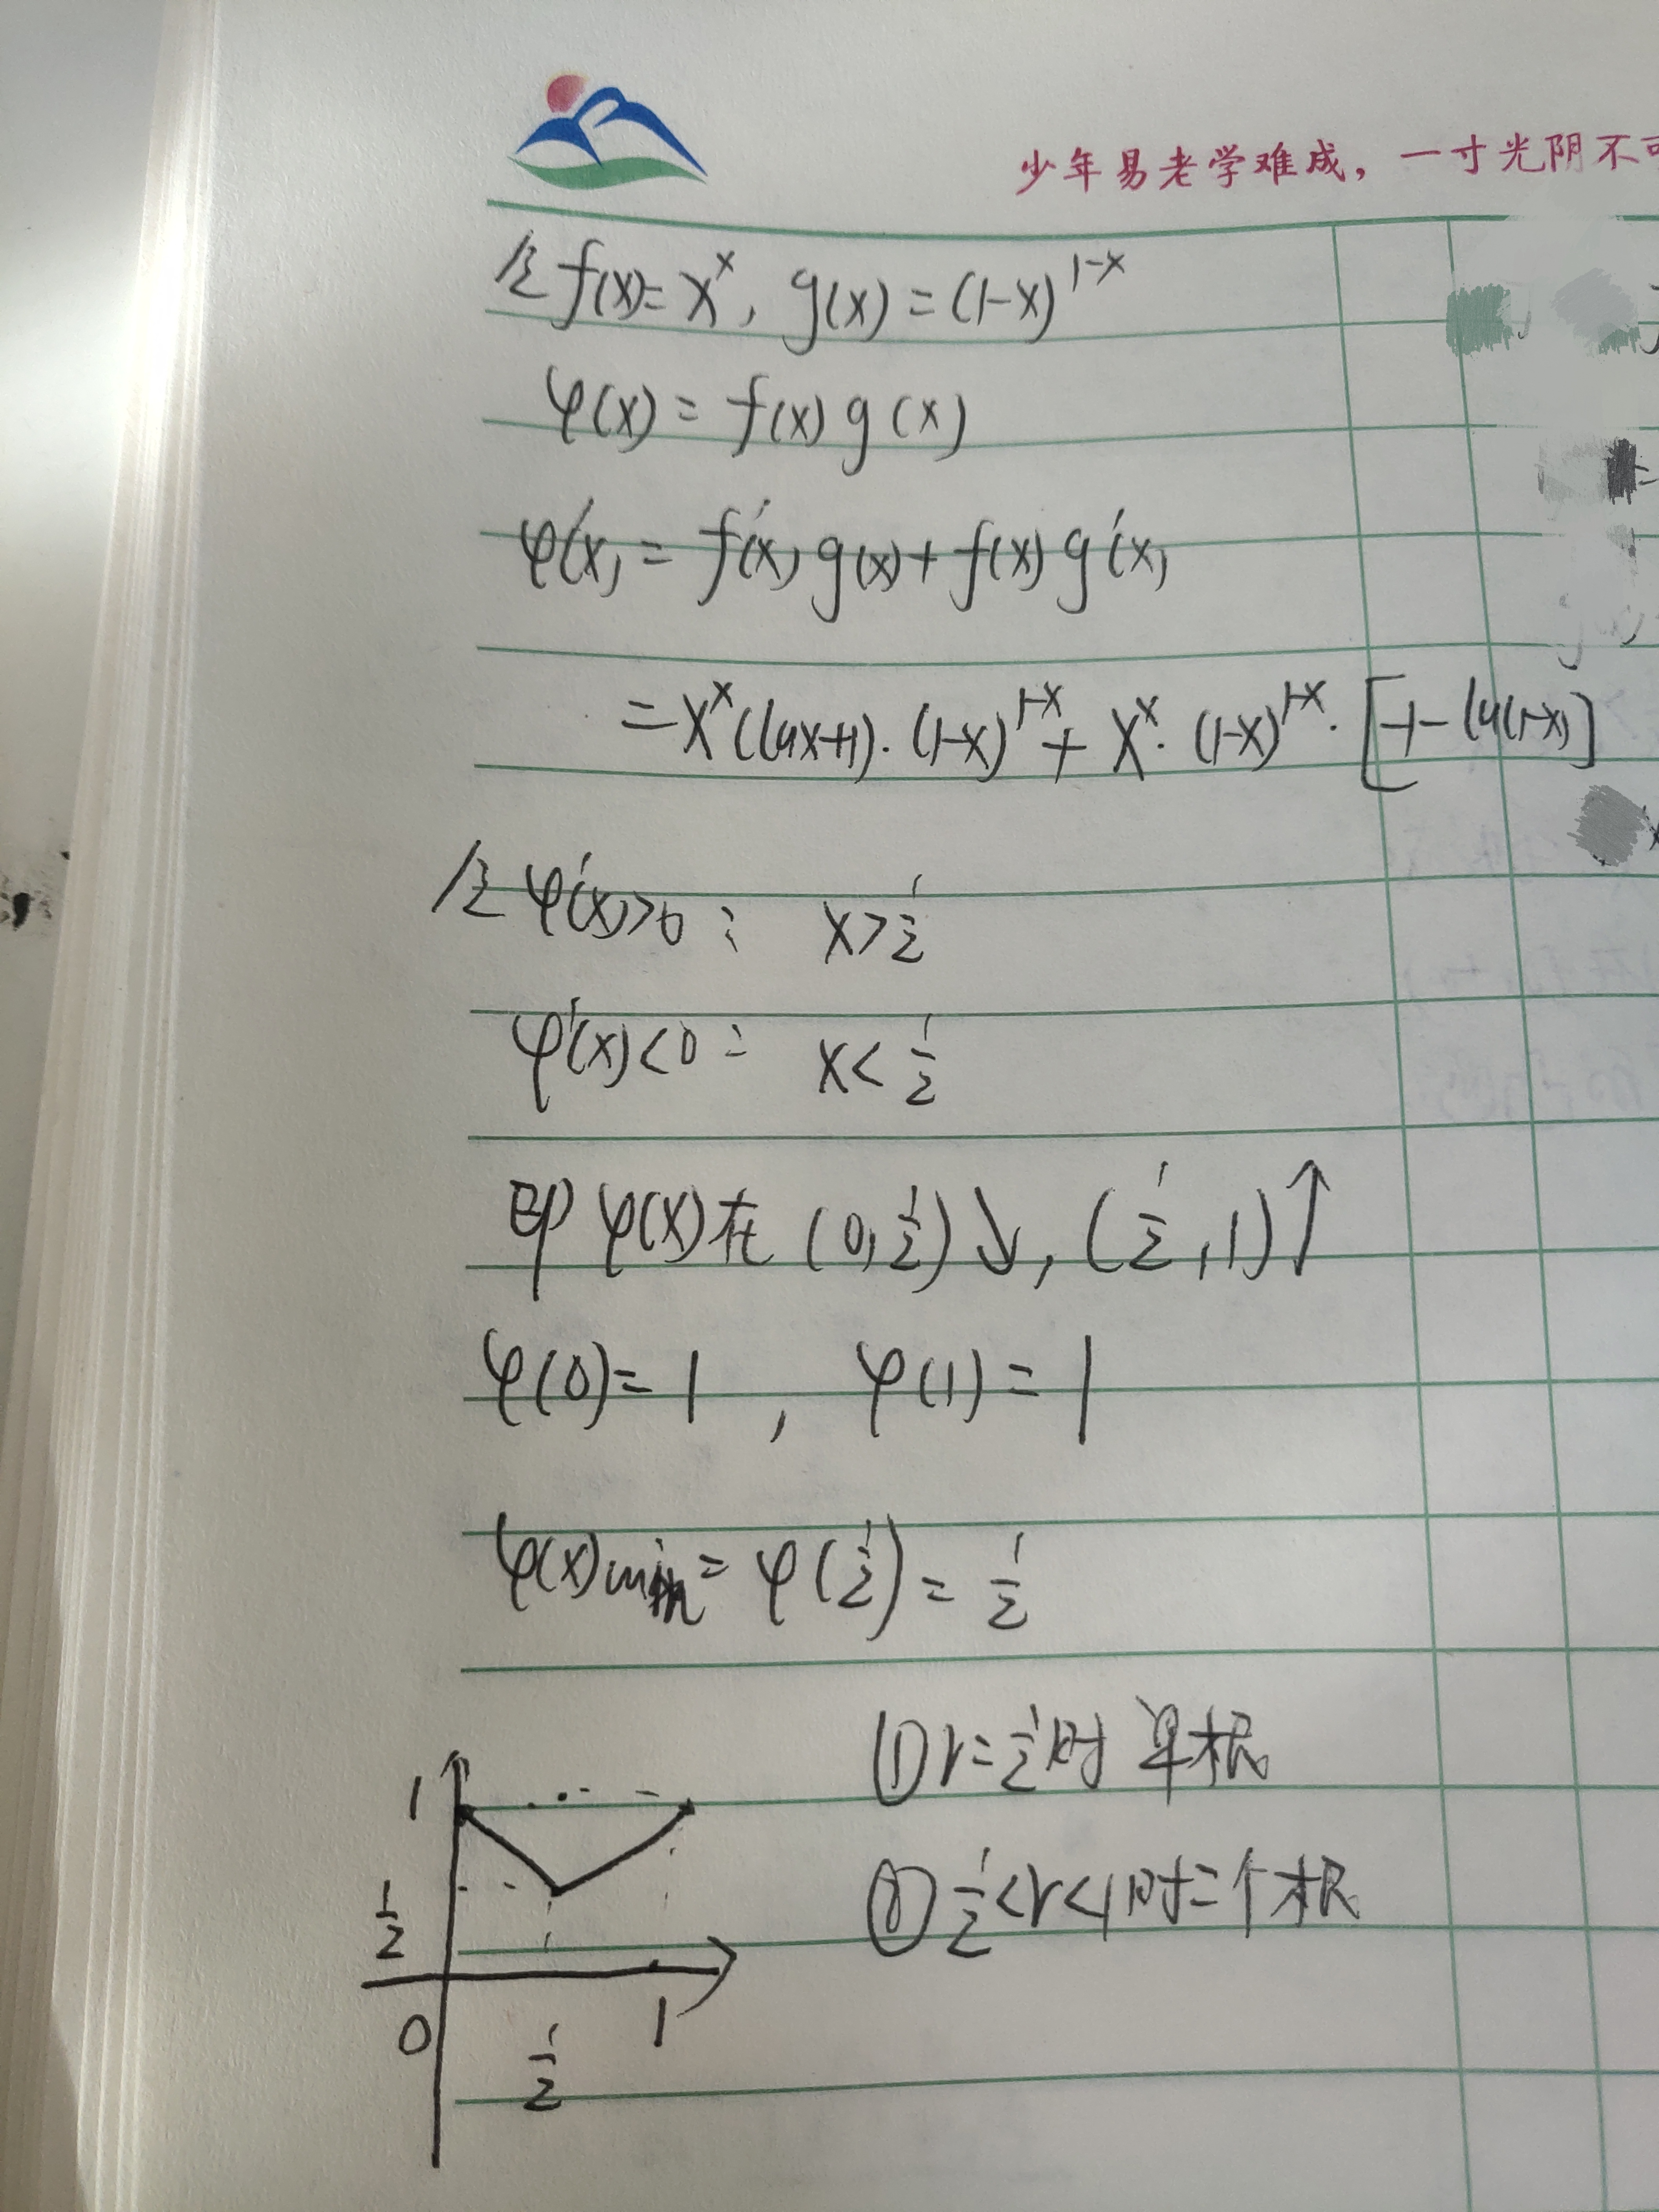 少年易老学难成，一寸光阴不可
令 f(x)=x^x, g(x)=(1-x)^{1-x}
φ(x)=f(x)g(x)
φ'(x)=f'(x)g(x)+f(x)g'(x)
=x^x(lnx+1)·(1-x)^{1-x}+x^x·(1-x)^{1-x}·[-1-ln(1-x)]
令 φ'(x)>0: x>1/2
φ'(x)<0: x<1/2
即 φ(x)在(0,1/2)↘, (1/2,1)↑
φ(0)=1, φ(1)=1
φ(x)min=φ(1/2)=1/2
①r=1/2时 单根
②1/2<r<1时二个根
1
1/2
0
1/2
1